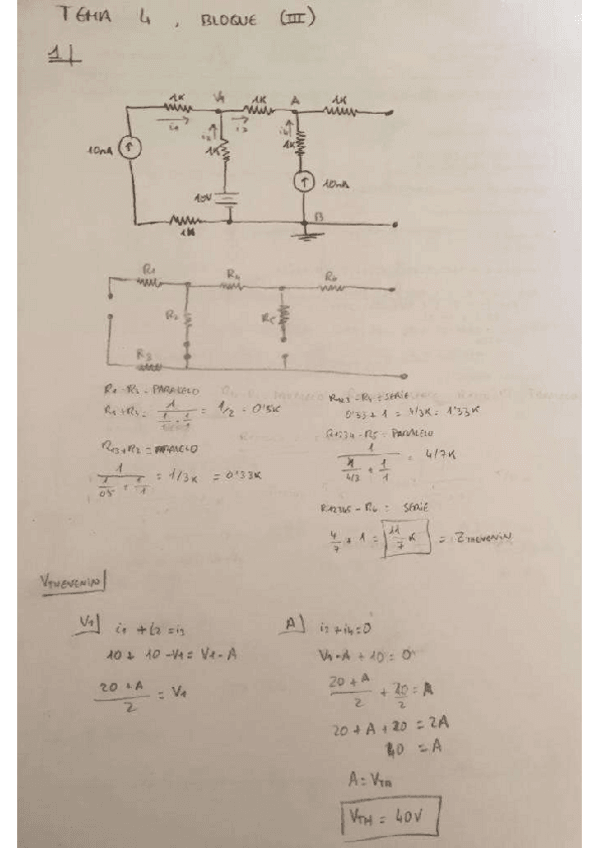 TEMA 4, BLOQUE (III)
1|
1K V1 1K A 1K
i1 i2 i3 i4
10mA 1K 1K
10V 10mA
1K B
R1 R4 R6
R2 R5
R3
R1-R3 = PARALELO
R1+R3 = 1 / (1/1 + 1/1) = 1/2 = 0'5K
R13+R2 = PARALELO
1 / (1/05 + 1/1) = 1/3K = 0'33K
R123-R4 = SERIE
0'33+1 = 4/3K = 1'33K
R1234-R5 = PARALELO
1 / (1/4/3 + 1/1) = 4/7K
R12345-R6 = SERIE
4/7 + 1 = 11/7 K = ZTHEVENIN
VTHEVENIN|
V1] i1 + i2 = i3
10 + 10-V1 = V1-A
20+A / 2 = V1
A] i3+i4=0
V1-A+10=0
20+A / 2 + 20/2 = A
20+A+20 = 2A
40 = A
A = VTH
VTH = 40V